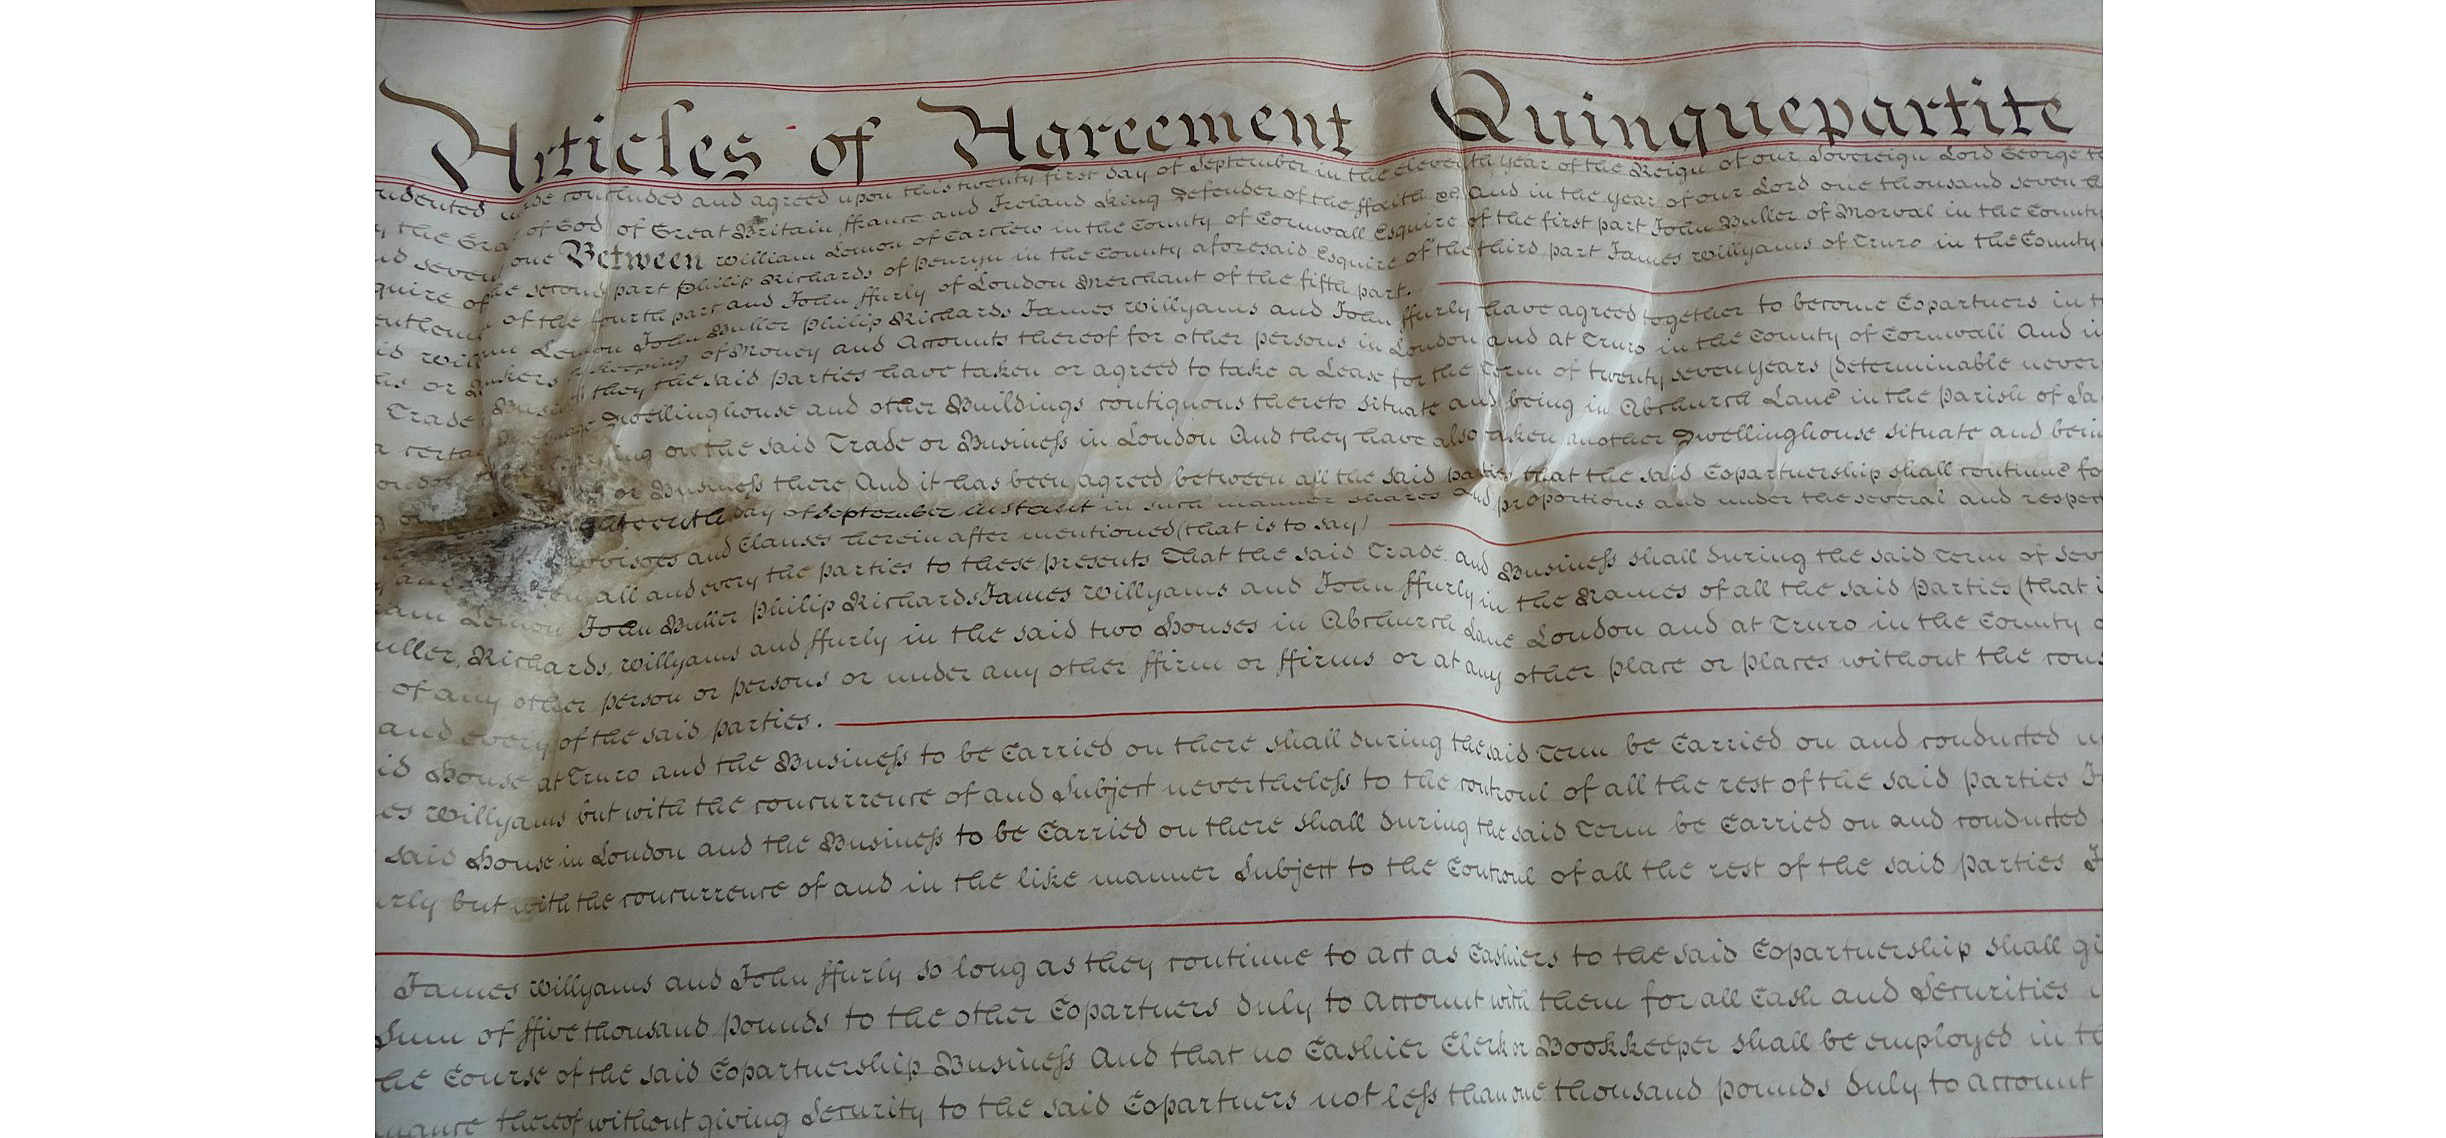 Articles of Agreement Quinquepartite
indented made concluded and agreed upon this twenty first day of September in the eleventh year of the Reign of our Sovereign Lord George
the Gra of God of Great Britain ffrance and Ireland King Defender of the ffaith &c. And in the year of our Lord one thousand seven
d seven one Between William Lemon of Carclew in the County of Cornwall Esquire of the first part John Buller of Morval in the County
quire of the second part Philip Richards of Penryn in the County aforesaid Esquire of the third part James Willyams of Truro in the County
of the fourth part and John ffurly of London Merchant of the fifth part.
id William Lemon John Buller Philip Richards James Willyams and John ffurly have agreed together to become Copartners in
as or keeping of Money and Accounts thereof for other persons in London and at Truro in the County of Cornwall And
Trade Busi they the said parties have taken or agreed to take a Lease for the Term of twenty seven years (determinable never
a certa Dwellinghouse and other Buildings contiguous thereto situate and being in Abchurch Lane in the parish of
on the said Trade or Business in London And they have also taken another Dwellinghouse situate and
or Business there And it has been agreed between all the said parties that the said Copartnership shall continue
day of September instant in such manner shares and proportions and under the several and respec
provisoes and Clauses herein after mentioned (that is to say)
all and every the parties to these presents That the said Trade and Business shall during the said Term of
iam Lemon John Buller Philip Richards James Willyams and John ffurly in the Names of all the said parties (that
uller, Richards, Willyams and ffurly in the said two Houses in Abchurch Lane London and at Truro in the County
of any other person or persons or under any other ffirm or ffirms or at any other place or places without the cons
and every of the said parties.
id House at Truro and the Business to be Carried on there shall during the said Term be Carried on and conducted
es Willyams but with the concurrence of and Subject nevertheless to the controul of all the rest of the said parties
said House in London and the Business to be Carried on there shall during the said Term be Carried on and conducted
rly but with the concurrence of and in the like manner Subject to the Controul of all the rest of the said parties
James Willyams and John ffurly so long as they continue to act as Cashiers to the said Copartnership shall gi
Sum of ffive thousand pounds to the other Copartners duly to account with them for all Cash and Securities
the Course of the said Copartnership Business And that no Cashier Clerk or Bookkeeper shall be employed in
nuance thereof without giving Security to the said Copartners not less than one thousand pounds duly to account